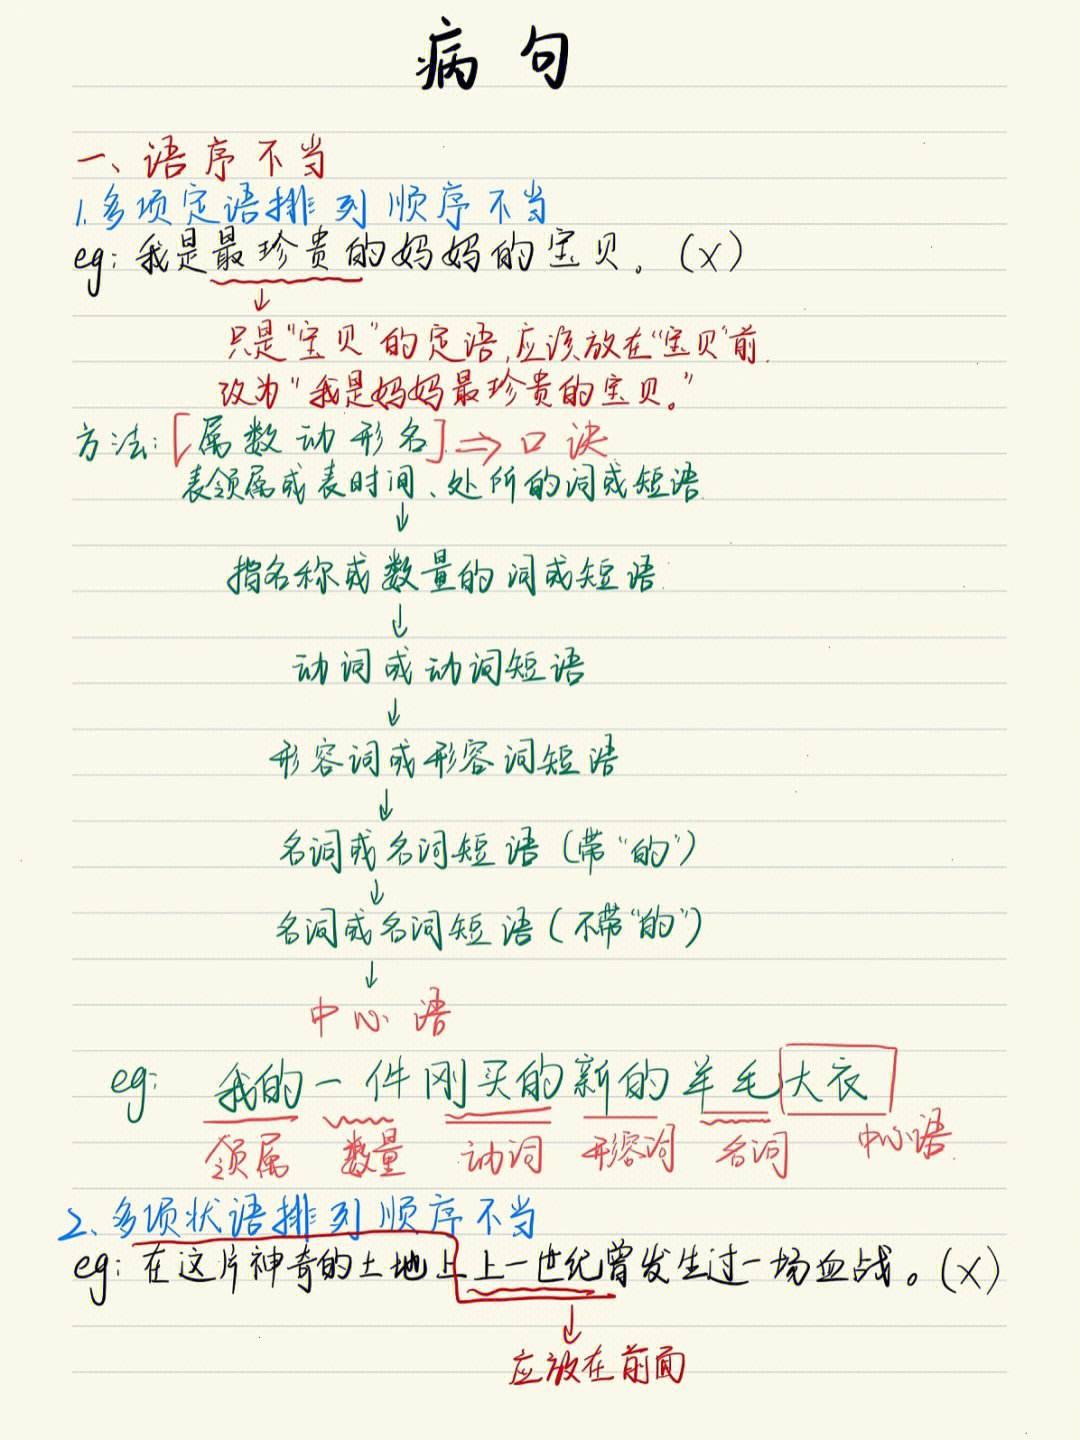 病句
一、语序不当
1.多项定语排列顺序不当
eg:我是最珍贵的妈妈的宝贝。(×)
↓
只是"宝贝"的定语,应该放在"宝贝"前.
改为"我是妈妈最珍贵的宝贝。"
方法:[属数动形名]⇒口诀
表领属或表时间、处所的词或短语
↓
指名称或数量的词或短语
↓
动词或动词短语
↓
形容词或形容词短语
↓
名词或名词短语(带"的")
↓
名词或名词短语(不带"的")
↓
中心语
eg: 我的一件刚买的新的羊毛大衣
领属 数量 动词 形容词 名词 中心语
2、多项状语排列顺序不当
eg:在这片神奇的土地上上一世纪曾发生过一场血战。(×)
↓
应放在前面